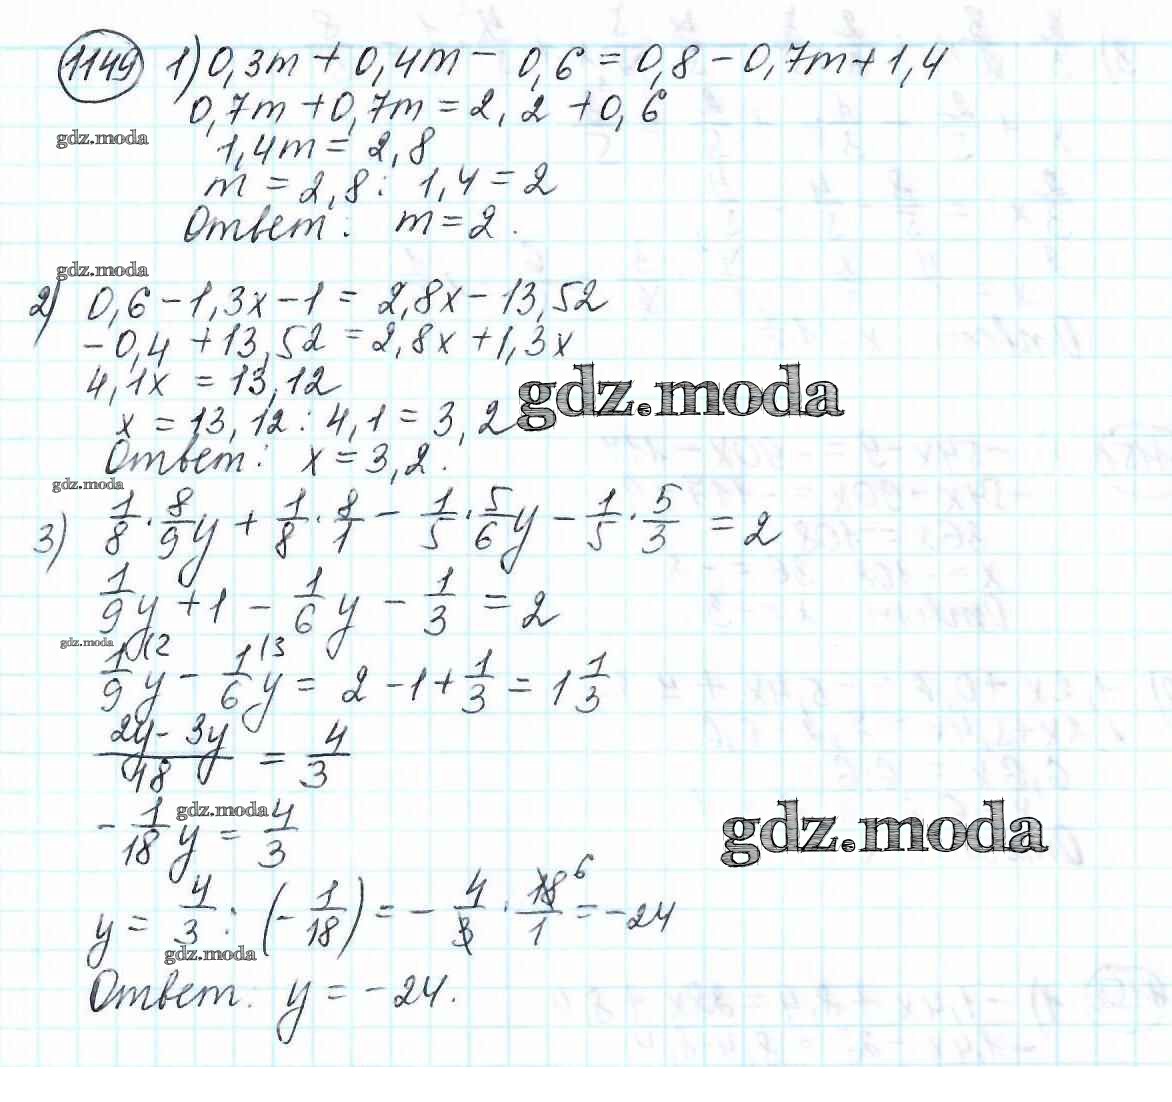 1149 1) 0,3m + 0,4m - 0,6 = 0,8 - 0,7m + 1,4
0,7m + 0,7m = 2,2 + 0,6
gdz.moda
1,4m = 2,8
m = 2,8 : 1,4 = 2
Ответ: m = 2.
gdz.moda
2) 0,6 - 1,3x - 1 = 2,8x - 13,52
-0,4 + 13,52 = 2,8x + 1,3x
4,1x = 13,12
gdz.moda
x = 13,12 : 4,1 = 3,2
Ответ: x = 3,2.
gdz.moda
3) 1/8 · 8/9 y + 1/8 · 8/1 - 1/5 · 5/6 y - 1/5 · 5/3 = 2
1/9 y + 1 - 1/6 y - 1/3 = 2
gdz.moda
1/9 y (2 - 1/6 y (3 = 2 - 1 + 1/3 = 1 1/3
2y - 3y / 18 = 4/3
gdz.moda
gdz.moda
- 1/18 y = 4/3
y = 4/3 : (- 1/18) = - 4/3 · 18/1 6 = -24
gdz.moda
Ответ: y = -24.